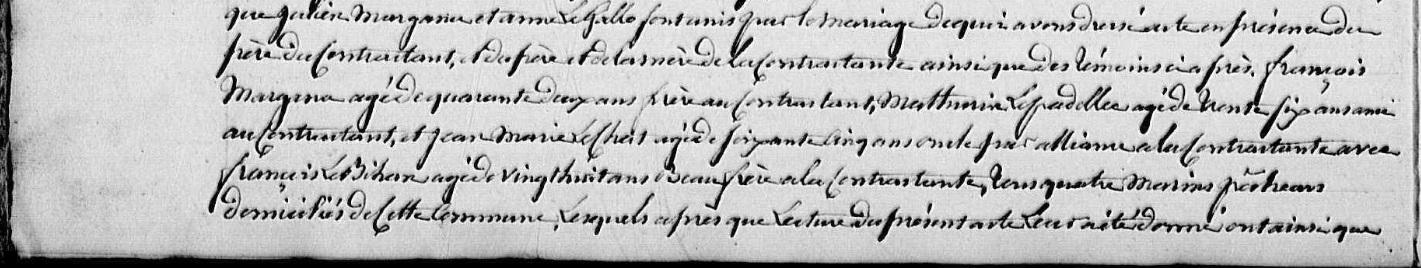 que Julien Margana et anne Le Gallo sont unis par le mariage de quoi avons dressé acte en présence du
frère du Contractant, et du père et de la mère de la Contractante ainsi que des témoins ci après, françois
Margana agé de quarante deux ans frère au Contractant, Mathurin agé de trente six ans ami
au Contractant, et Jean Marie agé de soixante Cinq ans oncle par alliance a la Contractante avec
françois Le Bihan agé de vingt huit ans Beau frère a la Contractante, tous quatre Marins pêcheurs
domiciliés de Cette Commune, Lesquels après que Lecture du présent acte Leur a été donné ont ainsi que